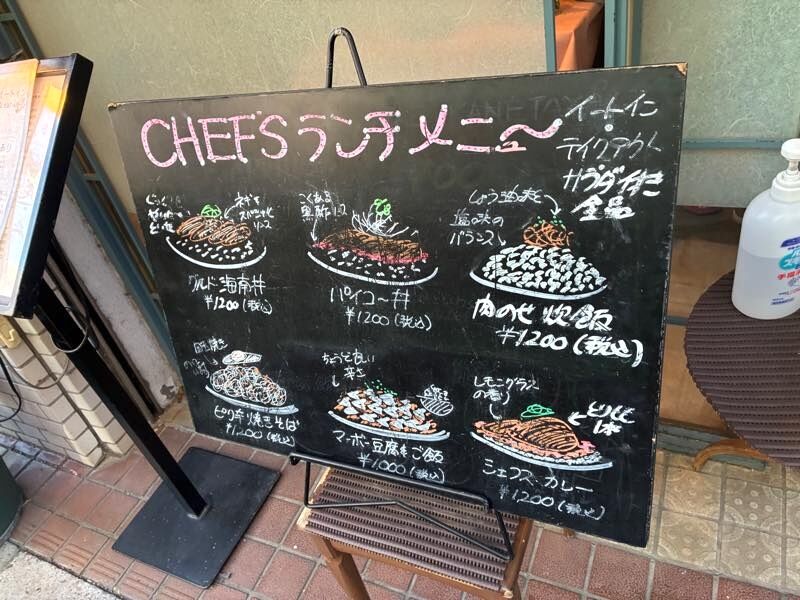 CHEF'S ランチメニュー
イートイン
・
テイクアウト
サラダ付き
全品
ネギと
スパシャル
ソース
グルド 海南丼
¥1200(税込)
こくある
黒酢ソース
パイコー丼
¥1200(税込)
しょう油味と
塩味の
バランス
肉のせ炒飯
¥1200(税込)
目玉焼き
ピリ辛焼きそば
¥1200(税込)
ちょうど良い
辛さ
マーボー豆腐とご飯
¥1,000(税込)
レモングラス
の香り
とりもも
1本
シェフズカレー
¥1200(税込)